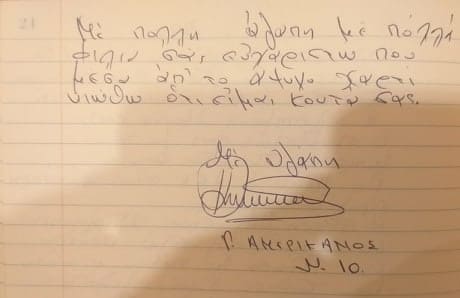 Μέ πολλη ἀγαπη μέ πόλλά
φιλια σάς, εὐχαριστω που
μεσα ἀπ' το αψυχο χαρτι
νιώθω ὅτι εἶμαι κοντα σας.
Μέ αγάπη
Γ. ΑΜΕΡΙΚΑΝΟΣ
Ν. 10.